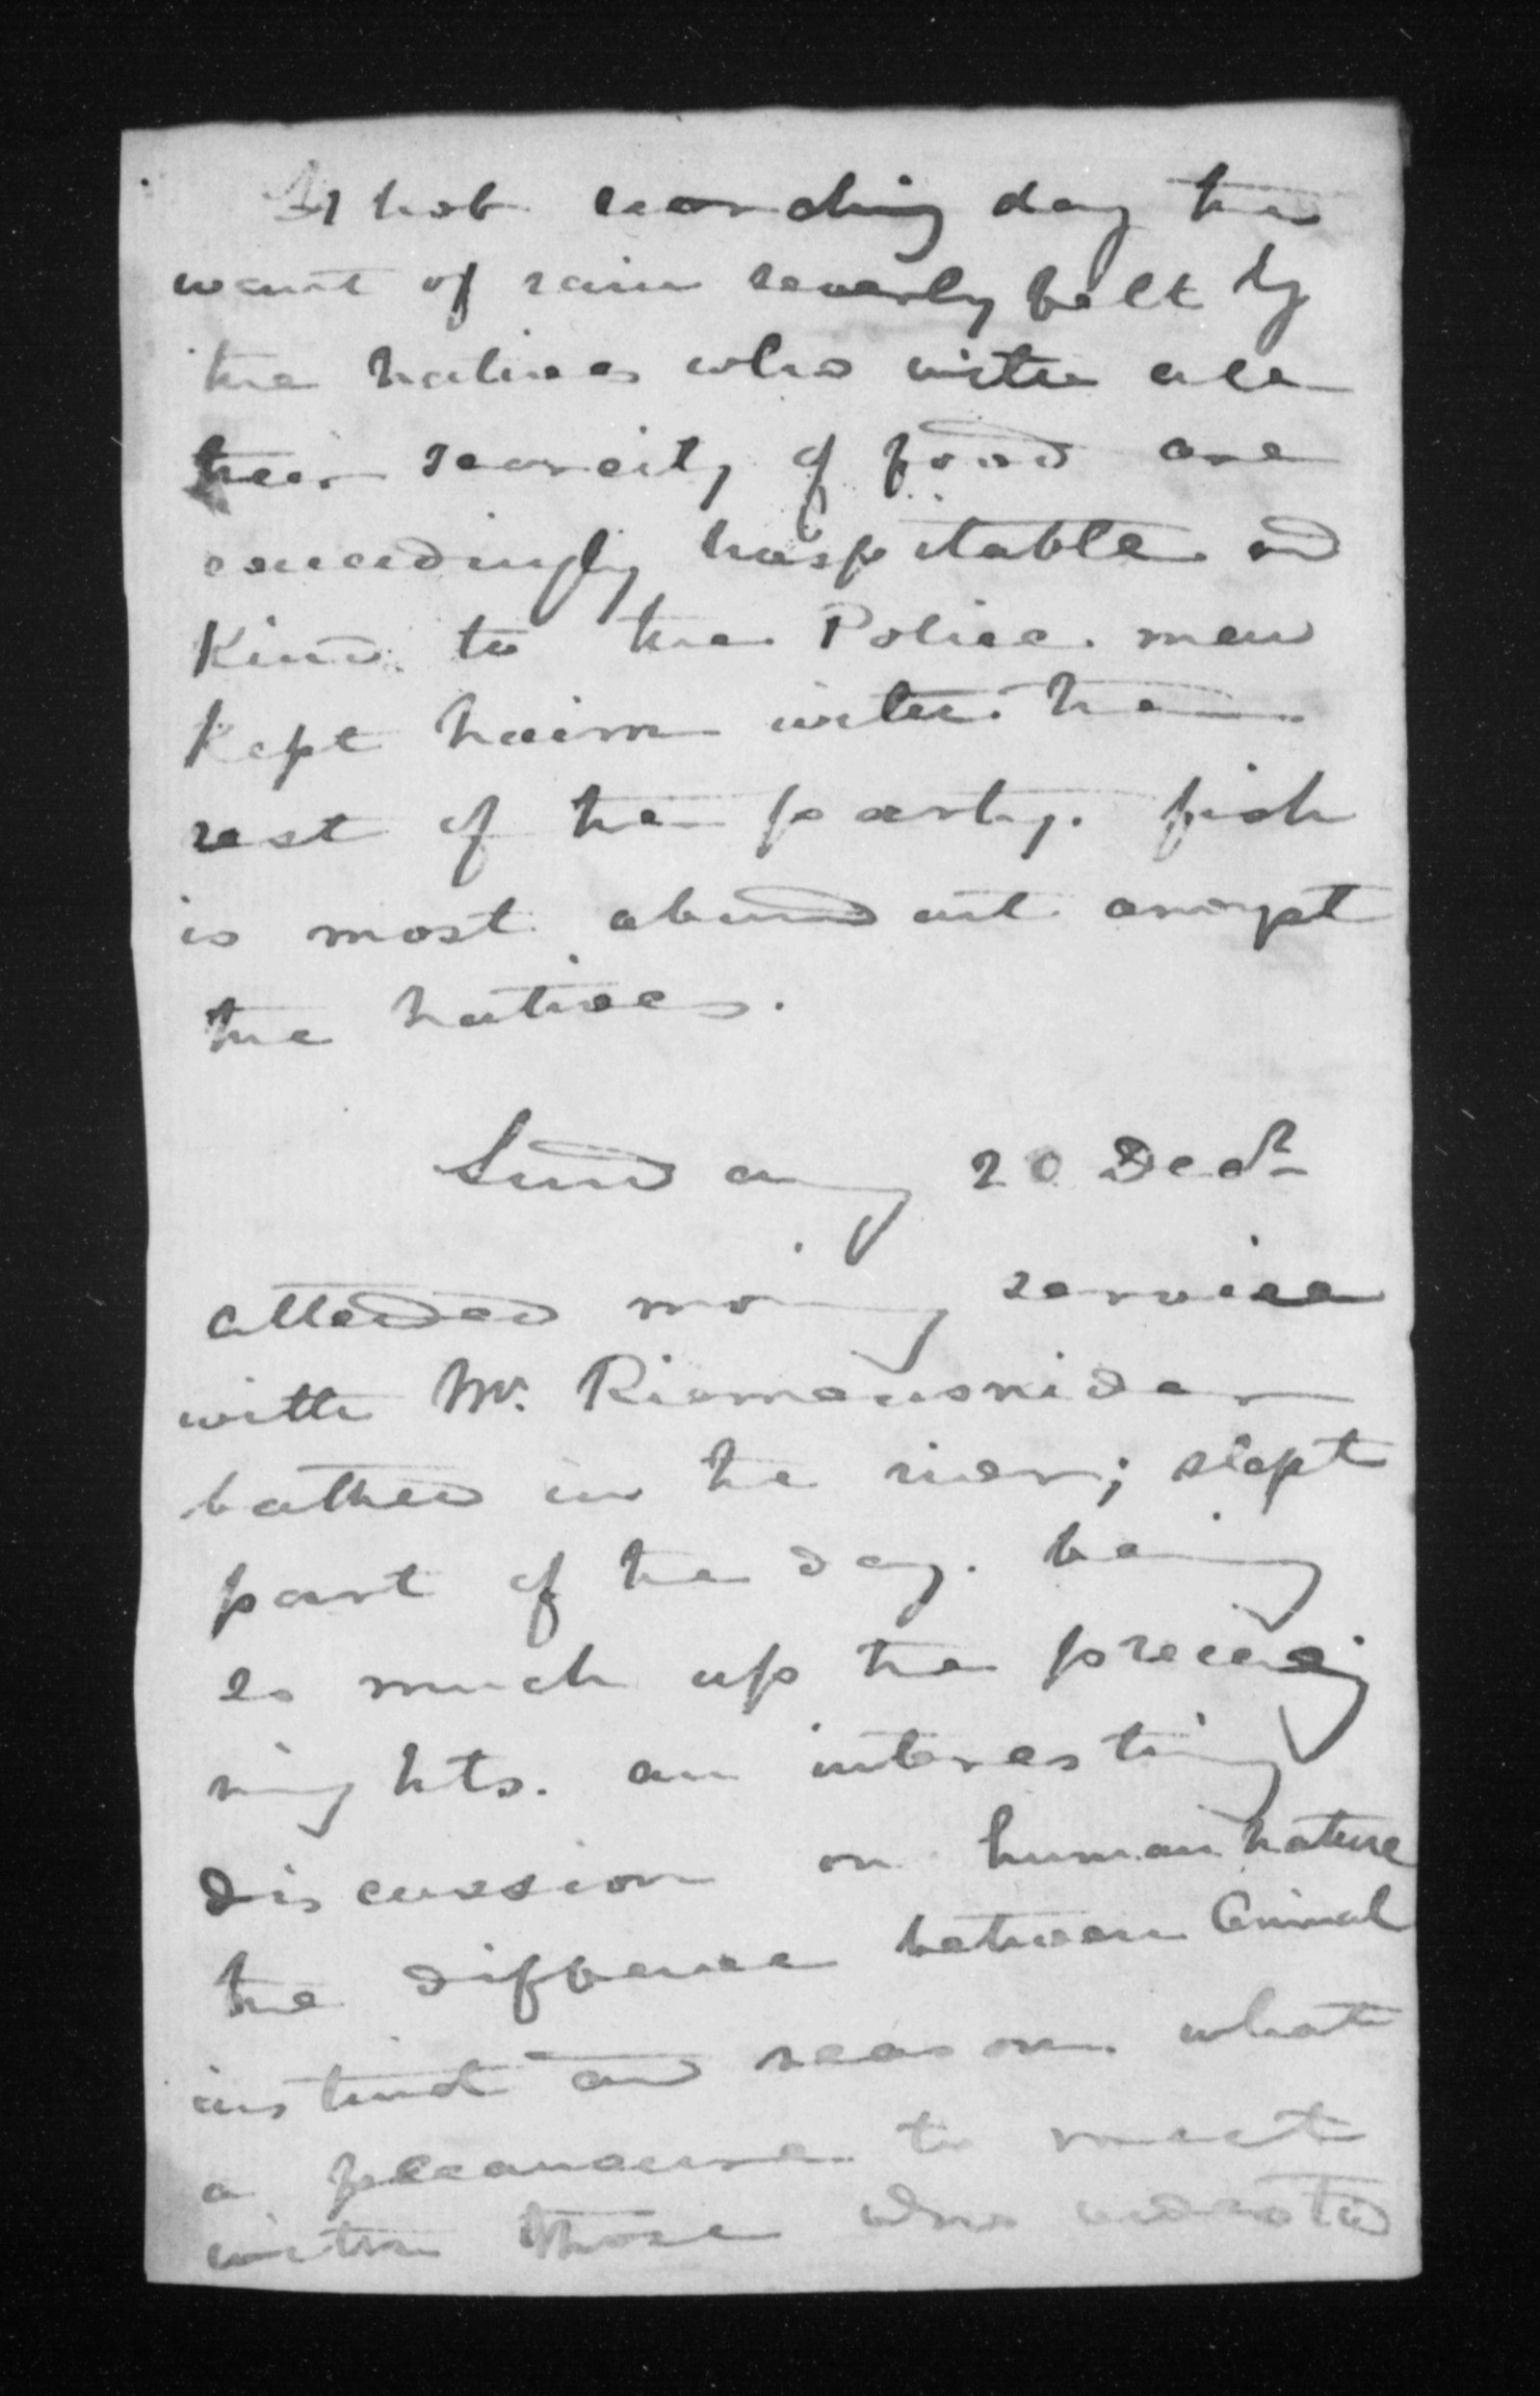 A hot scorching day the
want of rain severly felt by
the natives who with all
their scarcity of food are
exceedingly hospitable and
Kind to the Police. men
Kept haim with the
rest of the party. fish
is most abundant amongst
the natives.
Sunday 20 Decr
attended morning service
with Mr. Riemensnider
bathed in the river; slept
part of the day. being
so much up the preceding
nights. an interesting
discussion on human nature
the difference between Animal
instinct and reason. what
a pleasure to meet
with those who